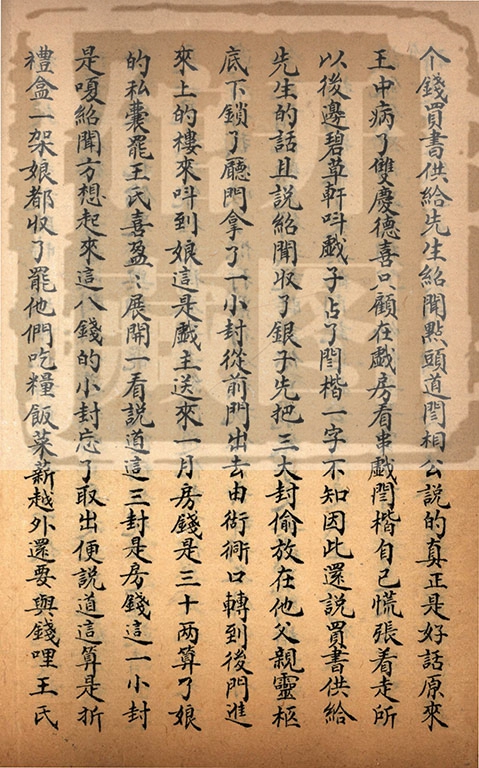 个錢買書供給先生紹聞點頭道閆相公說的真正是好話原來
王中病了雙慶德喜只顧在戲房看串戲閆楷自己慌張着走所
以後邊碧草軒呌戲子占了閆楷一字不知因此還說買書供給
先生的話且說紹聞收了銀子先把三大封偷放在他父親靈柩
底下鎖了廳門拿了一小封從前門出去由衚衕口轉到後門進
來上的樓來呌到娘這是戲主送來一月房錢是三十两算了娘
的私囊罷王氏喜盈〻展開一看說道這三封是房錢這一小封
是嗄紹聞方想起來這八錢的小封忘了取出便說道這算是折
禮盒一架娘都収了罷他們吃糧飯菜薪越外還要與錢哩王氏